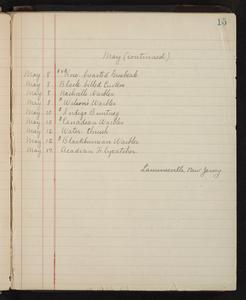 15
May (continued)
May 8. Rose breasted Grosbeak
May 8. Black billed Cuckoo
May 8. Nashville Warbler
May 8. Wilson's Warbler
May 10. Indigo Bunting
May 10. Canadian Warbler
May 12. Water thrush
May 12. Blackburnian Warbler
May 17. Acadian Flycatcher
Lawrenceville, New Jersey